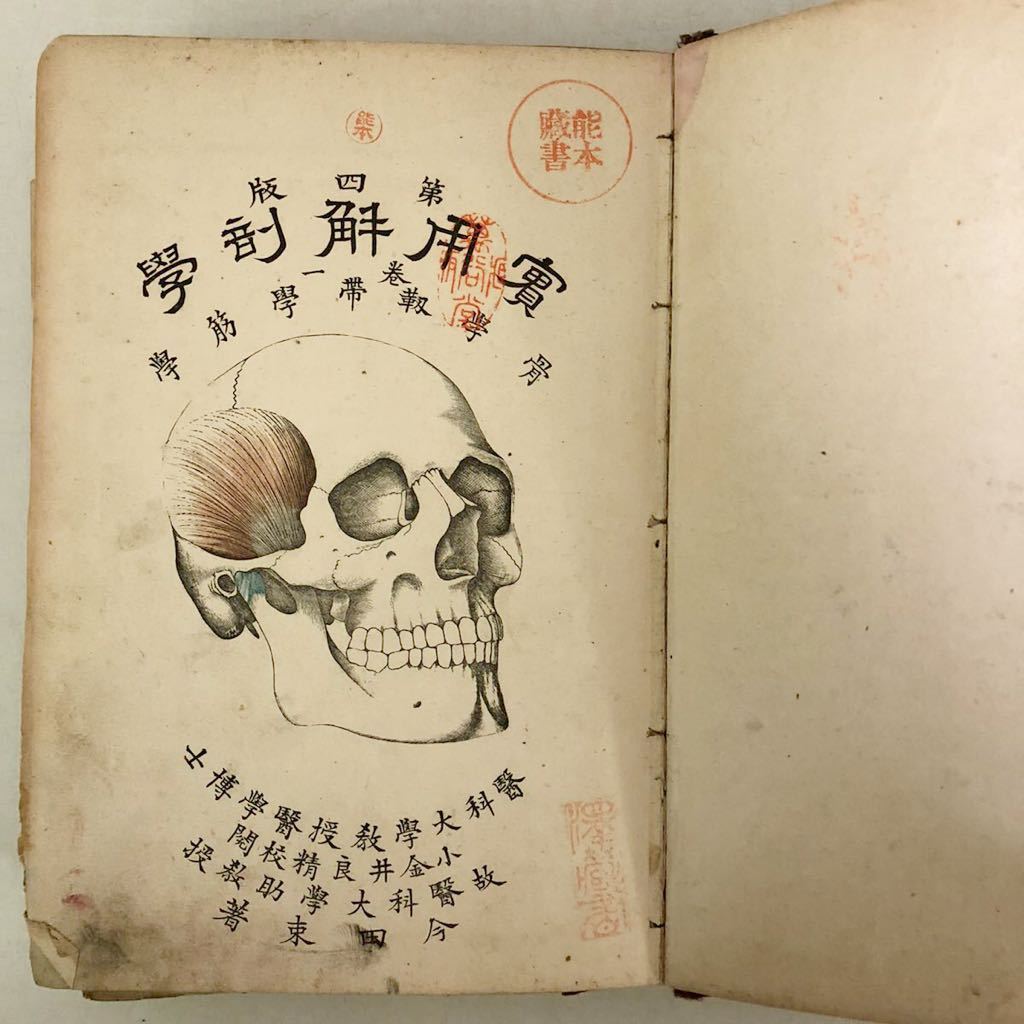 熊本
熊本藏書
第四版
實用觧剖學
卷一
骨學靱帶學筋學
醫科大學敎授醫學博士
小金井良精校閲
故醫科大學助敎授
今田束著